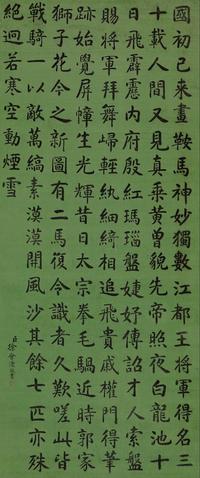 國初已來畫鞍馬神妙獨數江都王將軍得名三
十載人間又見真乘黃曾貌先帝照夜白龍池十
日飛霹靂內府殷紅瑪瑙盤婕妤傳詔才人索盤
賜將軍拜舞歸輕紈細綺相追飛貴戚權門得筆
跡始覺屏幛生光輝昔日太宗拳毛騧近時郭家
獅子花今之新圖有二馬復令識者久歎嗟此皆
戰騎一以敵萬縞素漠漠開風沙其餘七匹亦殊
絕迥若寒空動煙雪
臣徐會灃